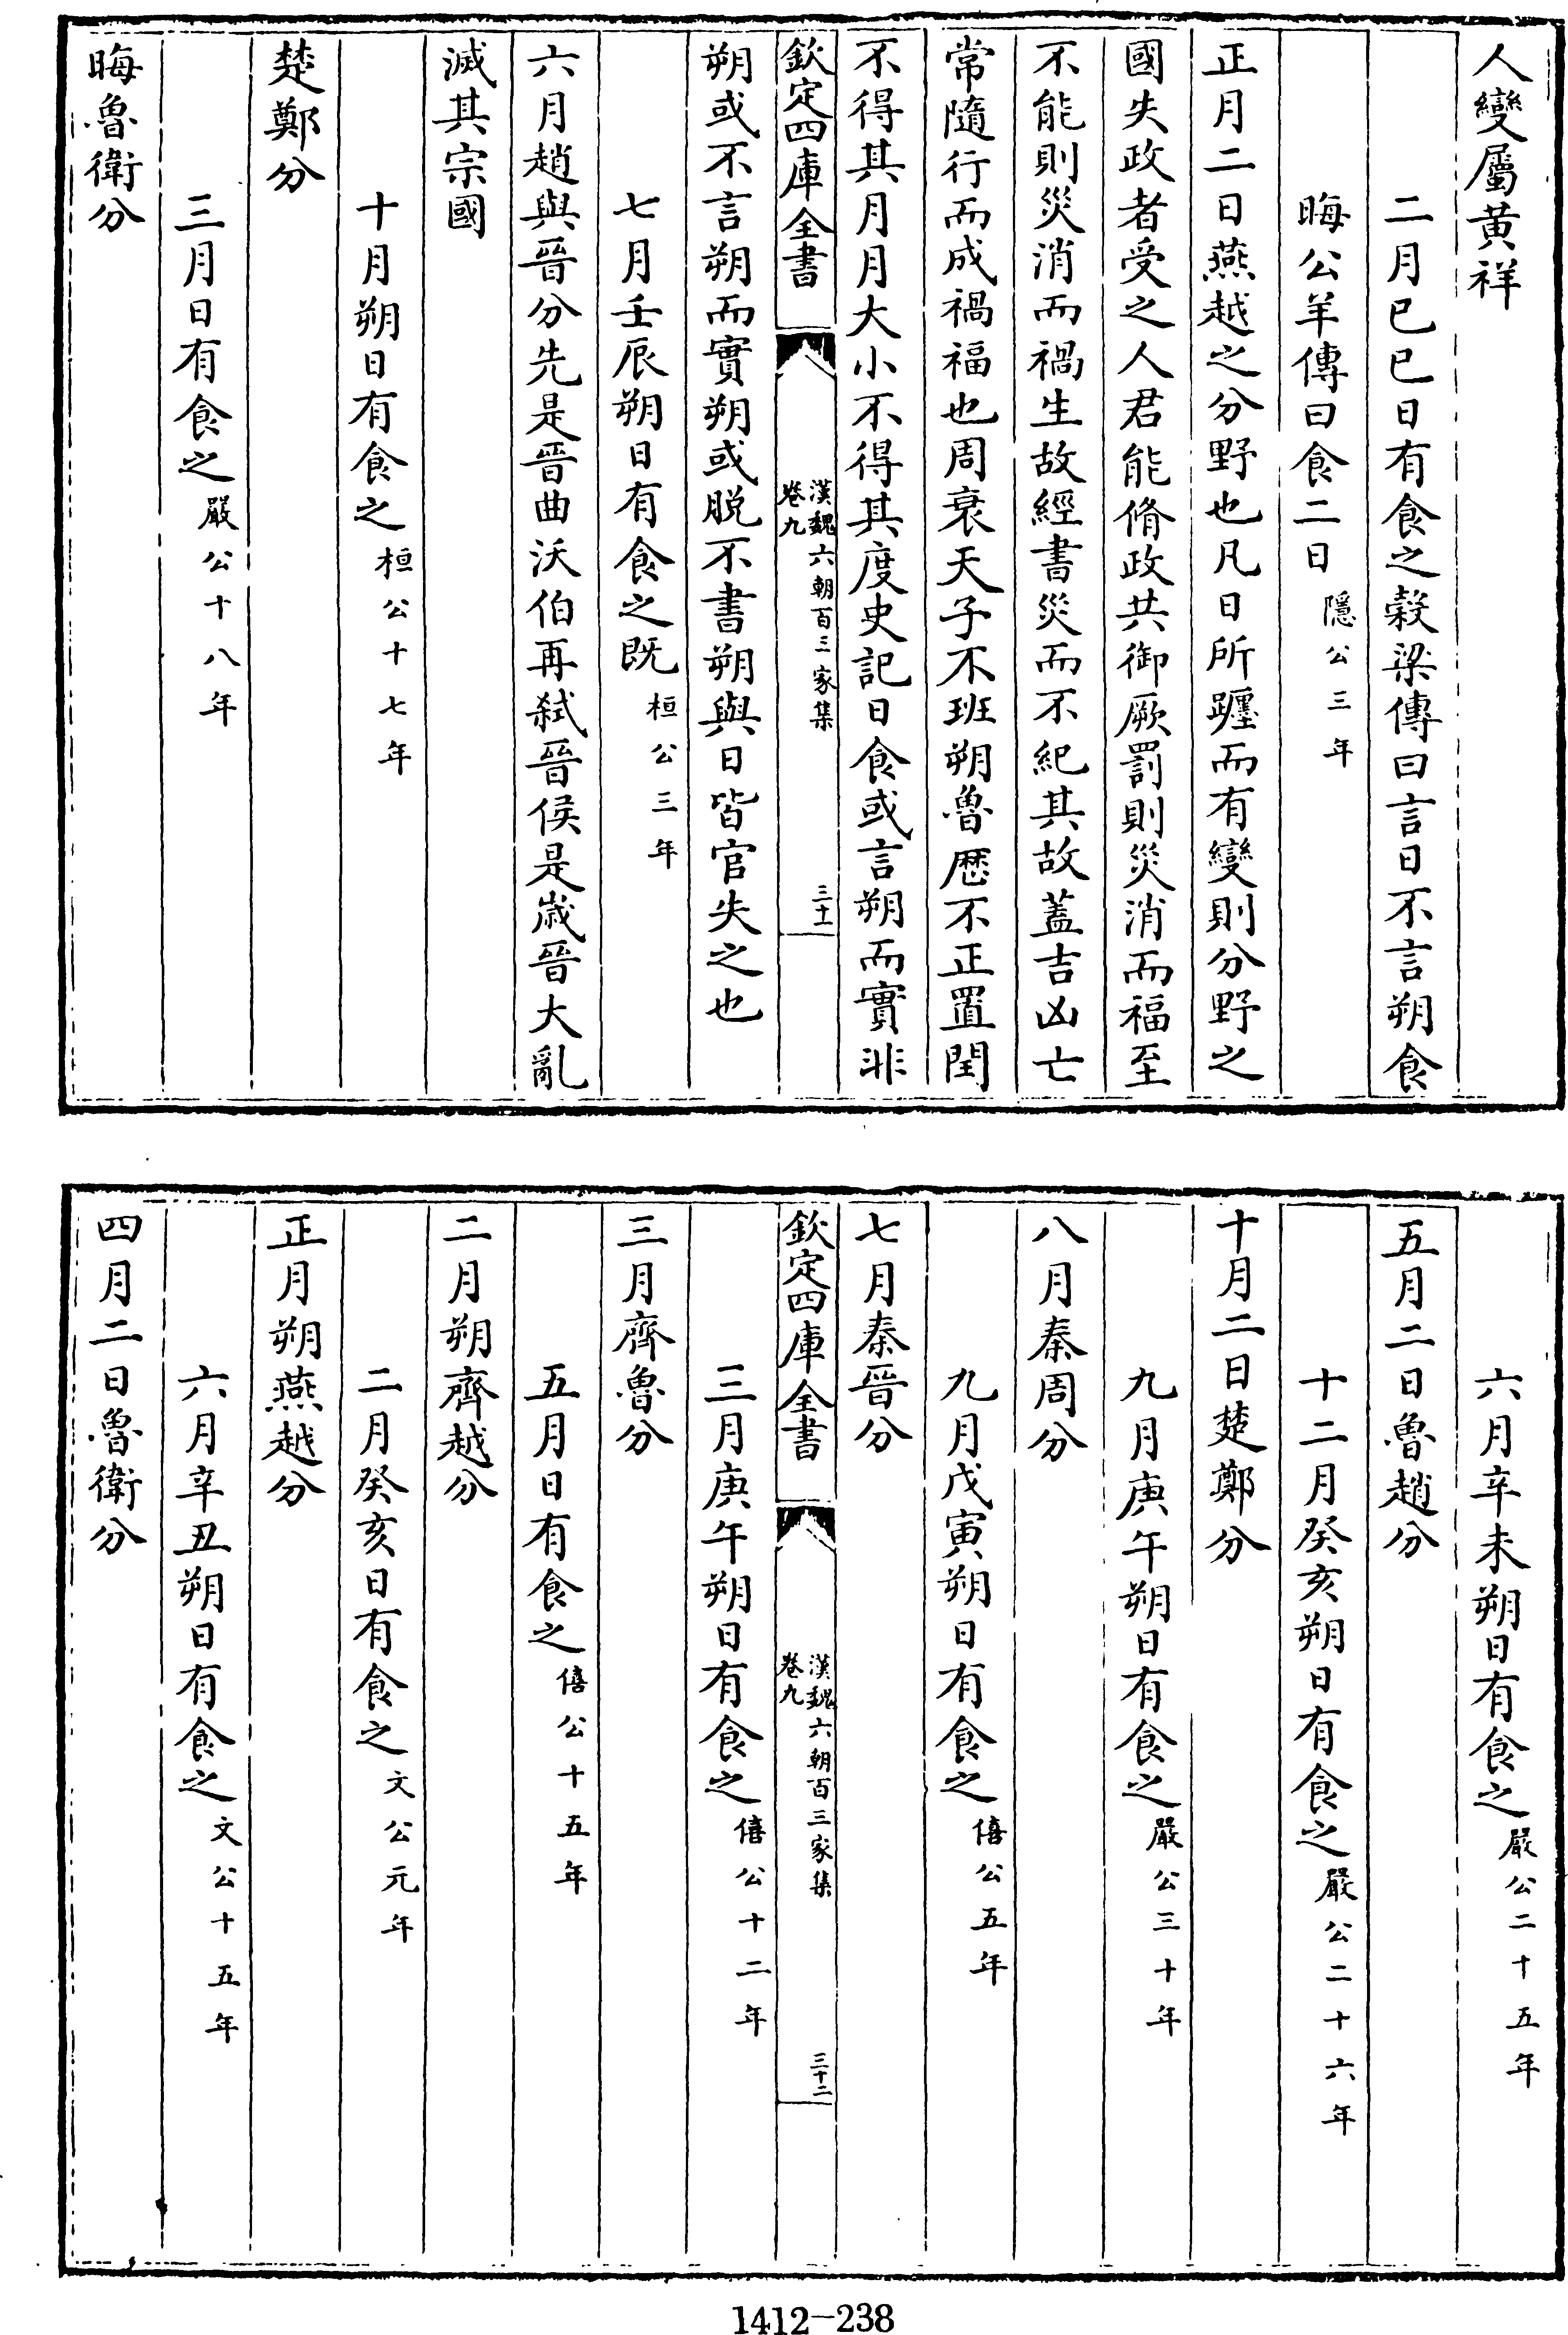 人變屬黄祥
二月已已日有食之榖梁傳曰言日不言朔食
晦公羊傳曰食二日隱公三年
正月二日燕越之分野也凡日所躔而有變則分野之
國失政者受之人君能脩政共御厥罰則災消而福至
不能則災消而禍生故經書災而不紀其故蓋吉凶亡
常隨行而成禍福也周衰天子不班朔魯厯不正置閏
不得其月月大小不得其度史記日食或言朔而實非
欽定四庫全書
漢魏六朝百三家集
卷九
三十一
朔或不言朔而實朔或脱不書朔與日皆官失之也
七月壬辰朔日有食之既桓公三年
六月趙與晉分先是晉曲沃伯再弑晉侯是歲晉大亂
滅其宗國
十月朔日有食之桓公十七年
楚鄭分
三月日有食之嚴公十八年
晦魯衛分
六月辛未朔日有食之嚴公二十五年
五月二日魯趙分
十二月癸亥朔日有食之嚴公二十六年
十月二日楚鄭分
九月庚午朔日有食之嚴公三十年
八月秦周分
九月戊寅朔日有食之僖公五年
七月秦晉分
欽定四庫全書
漢魏六朝百三家集
卷九
三十二
三月庚午朔日有食之僖公十二年
三月齊魯分
五月日有食之僖公十五年
二月朔齊越分
二月癸亥日有食之文公元年
正月朔燕越分
六月辛丑朔日有食之文公十五年
四月二日魯衛分
1412-238